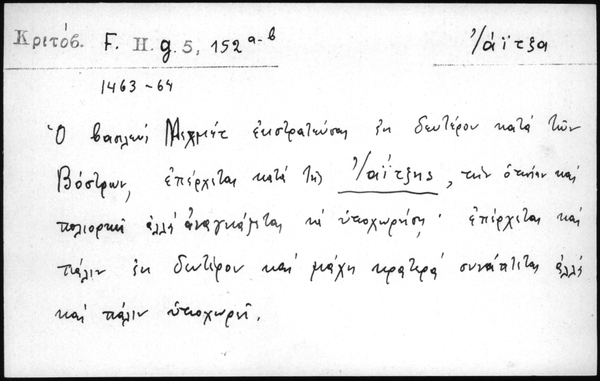 Κριτόβ. F. H. g. 5, 152 α-β Γιάϊτζα
1463-64
Ὁ βασιλεύς Μεχμέτ ἐκστρατεύσας ἐκ δευτέρου κατά τῶν
Βόστρων, ἐπέρχεται κατά τῆς Γιάϊτζης, τήν ὁποίαν καί
πολιορκεῖ ἀλλ' ἀναγκάζεται νά ὑποχωρήσῃ· ἐπέρχεται καί
πάλιν ἐκ δευτέρου καί μάχη κρατερά συνάπτεται ἀλλά
καί πάλιν ὑποχωρεῖ.